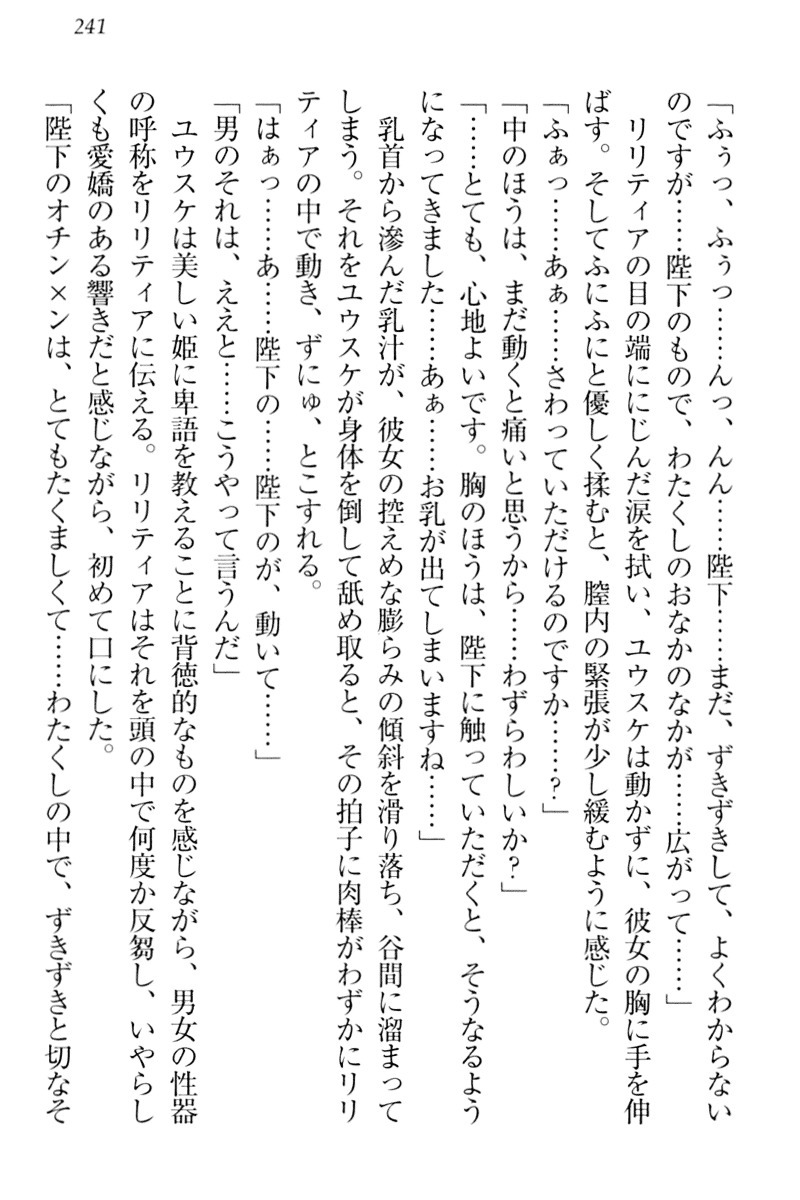 241
「ふぅっ、ふぅっ……んっ、んん……陛下……まだ、ずきずきして、よくわからない
のですが……陛下のもので、わたくしのおなかのなかが……広がって……」
リリティアの目の端ににじんだ涙を拭い、ユウスケは動かずに、彼女の胸に手を伸
ばす。そしてふにふにと優しく揉むと、膣内の緊張が少し緩むように感じた。
「ふぁっ……あぁ……さわっていただけるのですか……?」
「中のほうは、まだ動くと痛いと思うから……わずらわしいか?」
「……とても、心地よいです。胸のほうは、陛下に触っていただくと、そうなるよう
になってきました……あぁ……お乳が出てしまいますね……」
乳首から滲んだ乳汁が、彼女の控えめな膨らみの傾斜を滑り落ち、谷間に溜まって
しまう。それをユウスケが身体を倒して舐め取ると、その拍子に肉棒がわずかにリリ
ティアの中で動き、ずにゅ、とこすれる。
「はぁっ……あ……陛下の……陛下のが、動いて……」
「男のそれは、ええと……こうやって言うんだ」
ユウスケは美しい姫に卑語を教えることに背徳的なものを感じながら、男女の性器
の呼称をリリティアに伝える。リリティアはそれを頭の中で何度か反芻し、いやらし
くも愛嬌のある響きだと感じながら、初めて口にした。
「陛下のオチン×ンは、とてもたくましくて……わたくしの中で、ずきずきと切なそ